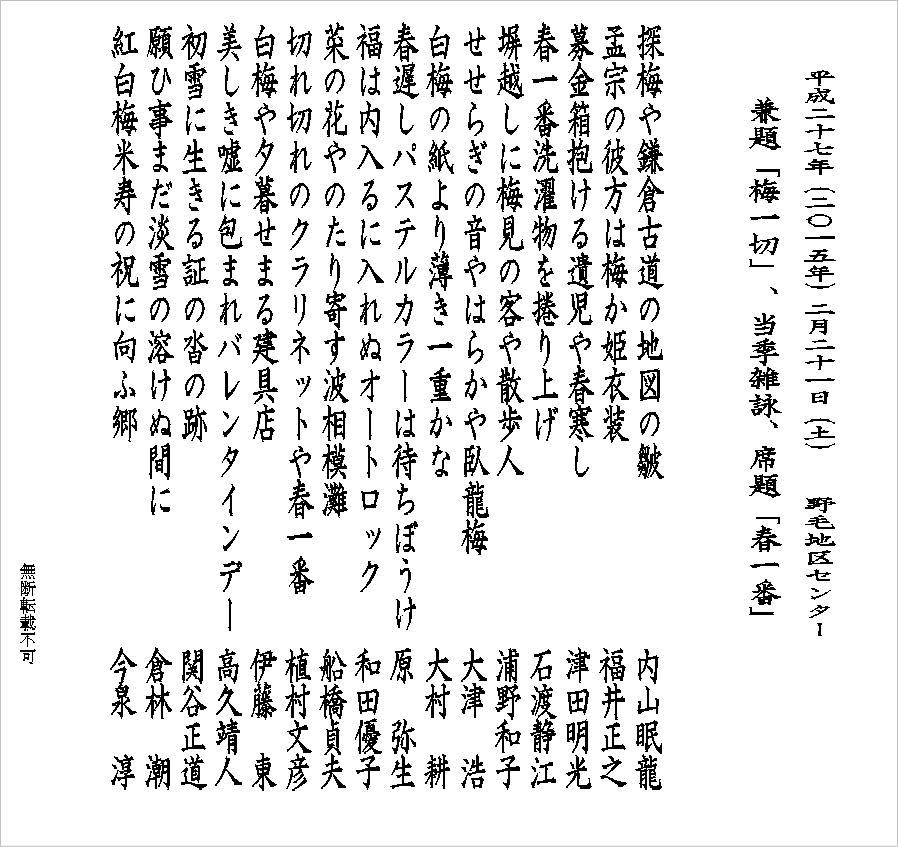 平成二十七年（二〇一五年）二月二十一日（土） 野毛地区センター
兼題「梅一切」、当季雑詠、席題「春一番」
探梅や鎌倉古道の地図の皺 内山眠龍
孟宗の彼方は梅か姫衣装 福井正之
募金箱抱ける遺児や春寒し 津田明光
春一番洗濯物を捲り上げ 石渡静江
塀越しに梅見の客や散歩人 浦野和子
せせらぎの音やはらかや臥龍梅 大津 浩
白梅の紙より薄き一重かな 大村 耕
春遅しパステルカラーは待ちぼうけ 原 弥生
福は内入るに入れぬオートロック 和田優子
菜の花やのたり寄す波相模灘 船橋貞夫
切れ切れのクラリネットや春一番 植村文彦
白梅や夕暮せまる建具店 伊藤 東
美しき嘘に包まれバレンタインデー 高久靖人
初雪に生きる証の沓の跡 関谷正道
願ひ事まだ淡雪の溶けぬ間に 倉林 潮
紅白梅米寿の祝に向ふ郷 今泉 淳
無断転載不可